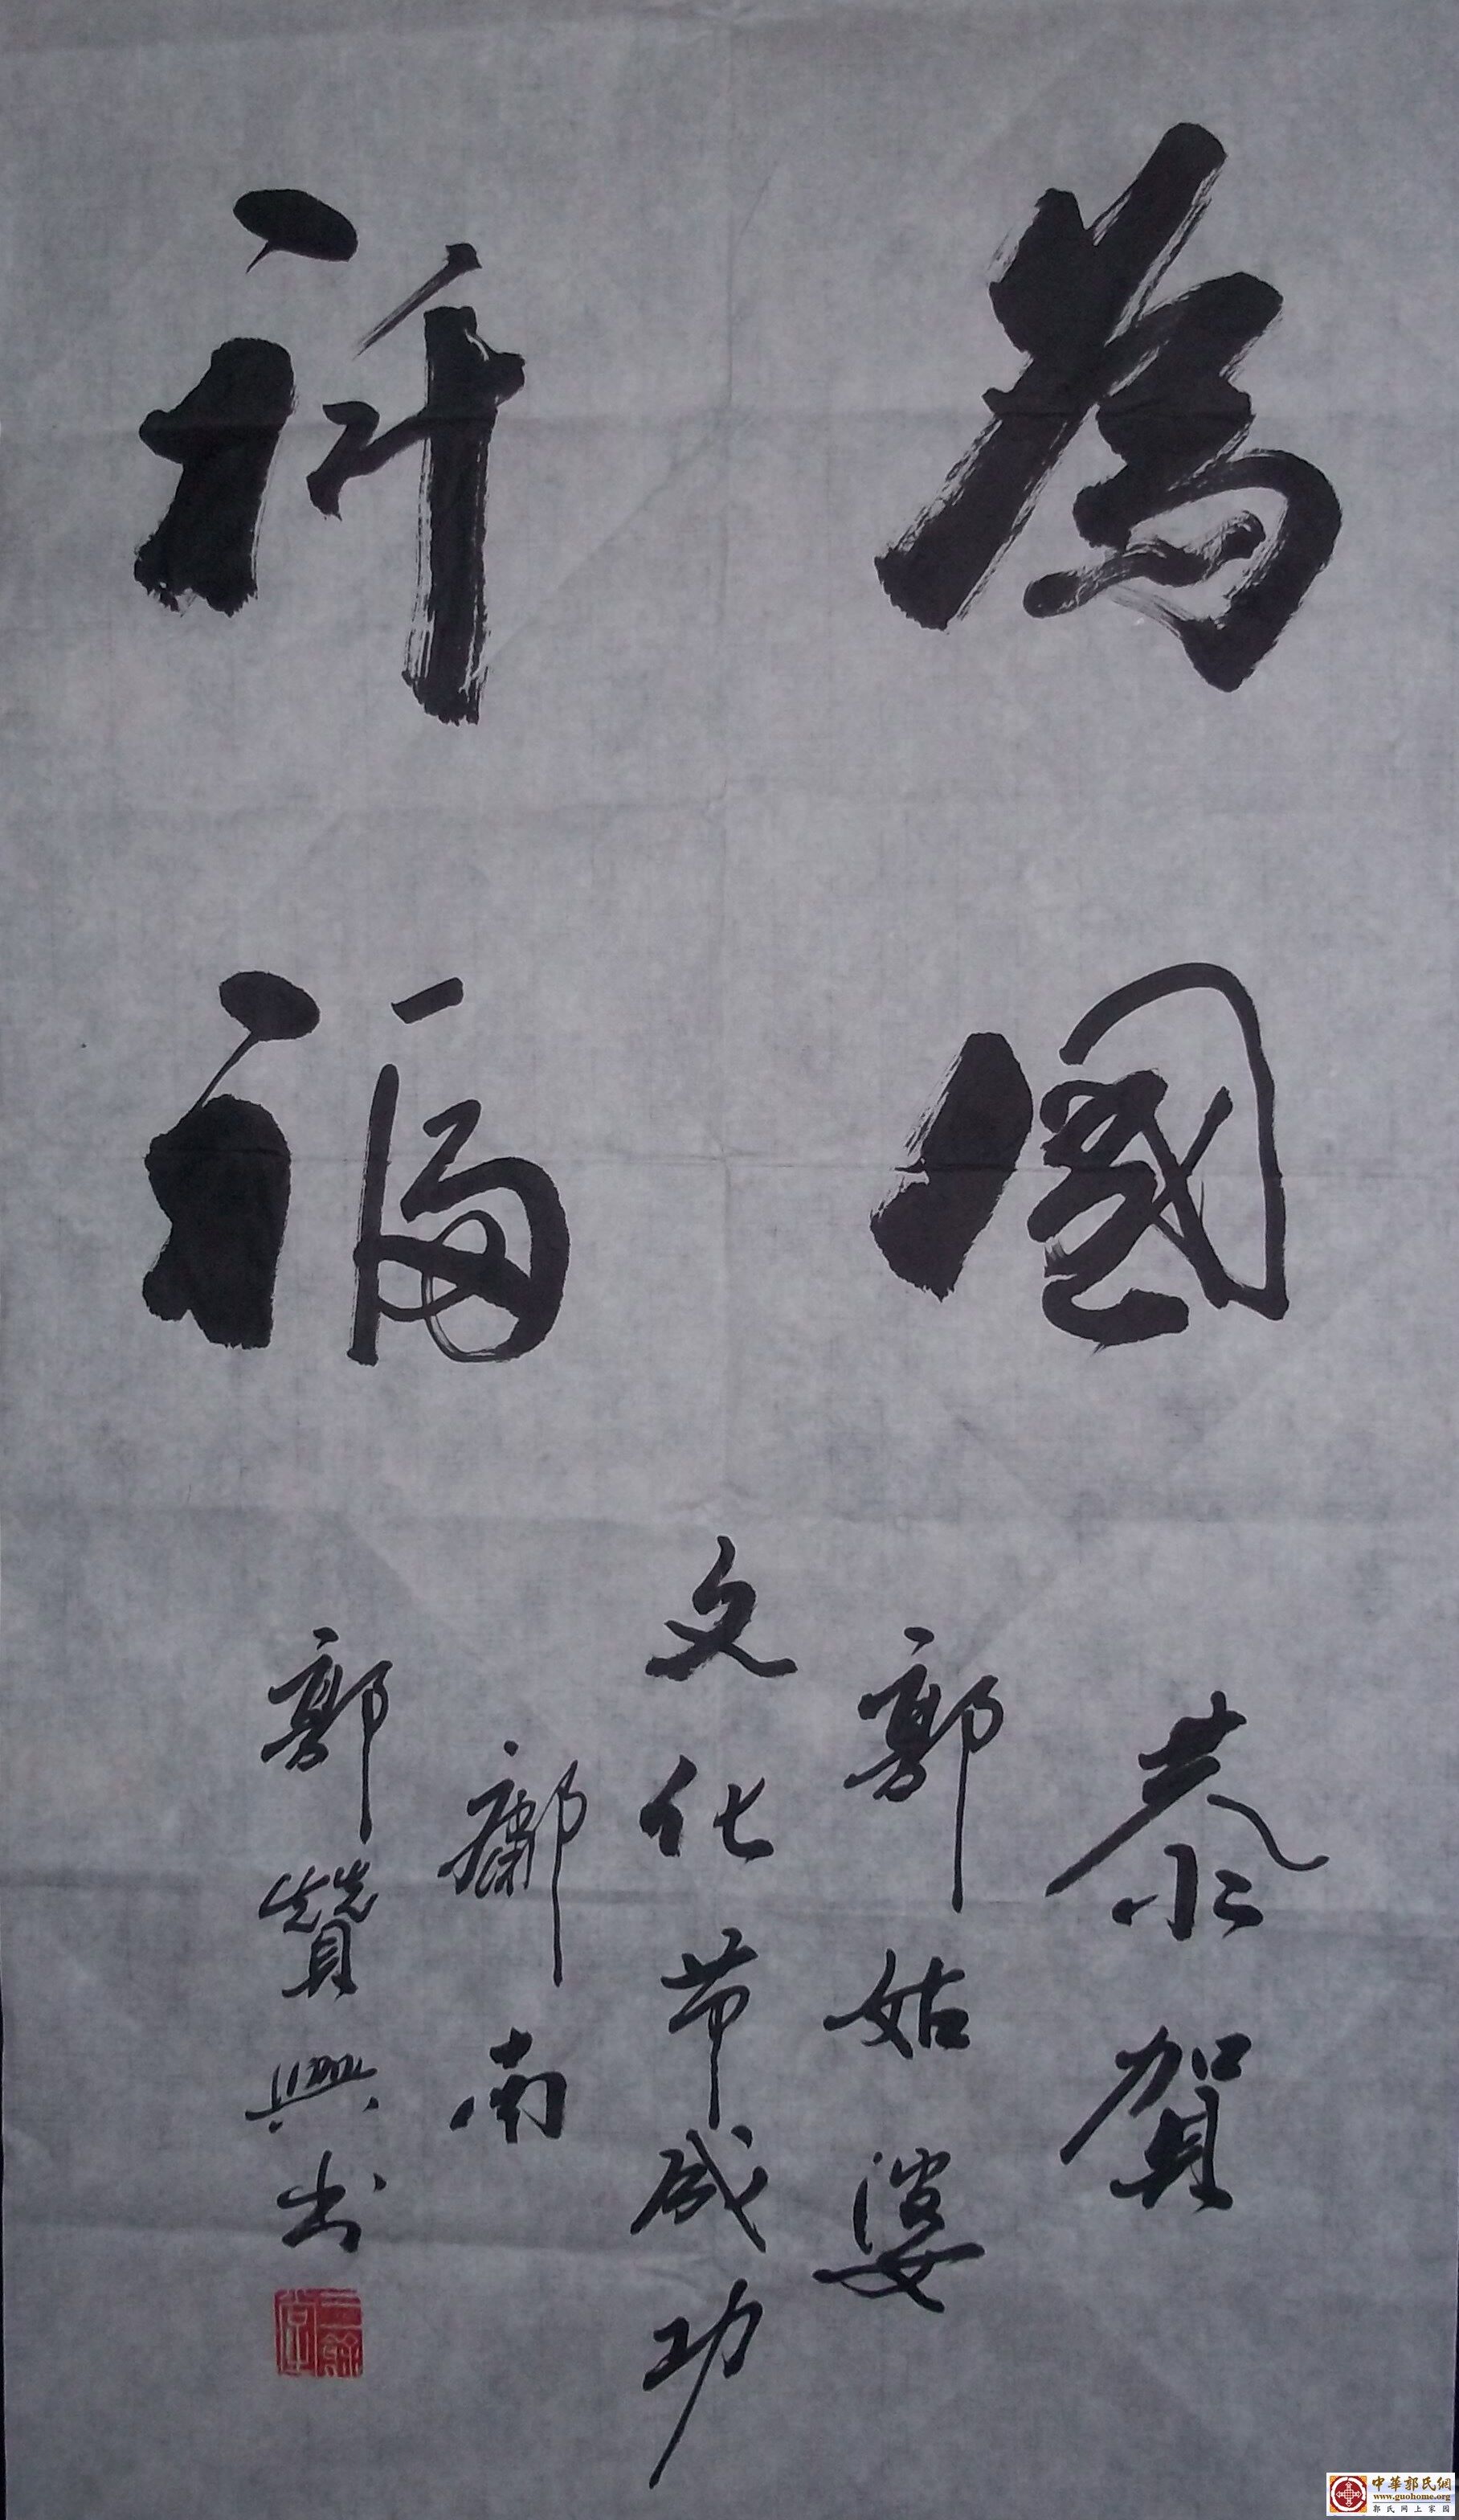 為國
祈福
恭賀
郭姑婆
文化节成功
鄘南
郭贊興书
中華郭氏網
www.guohome.org
郭氏网上家园